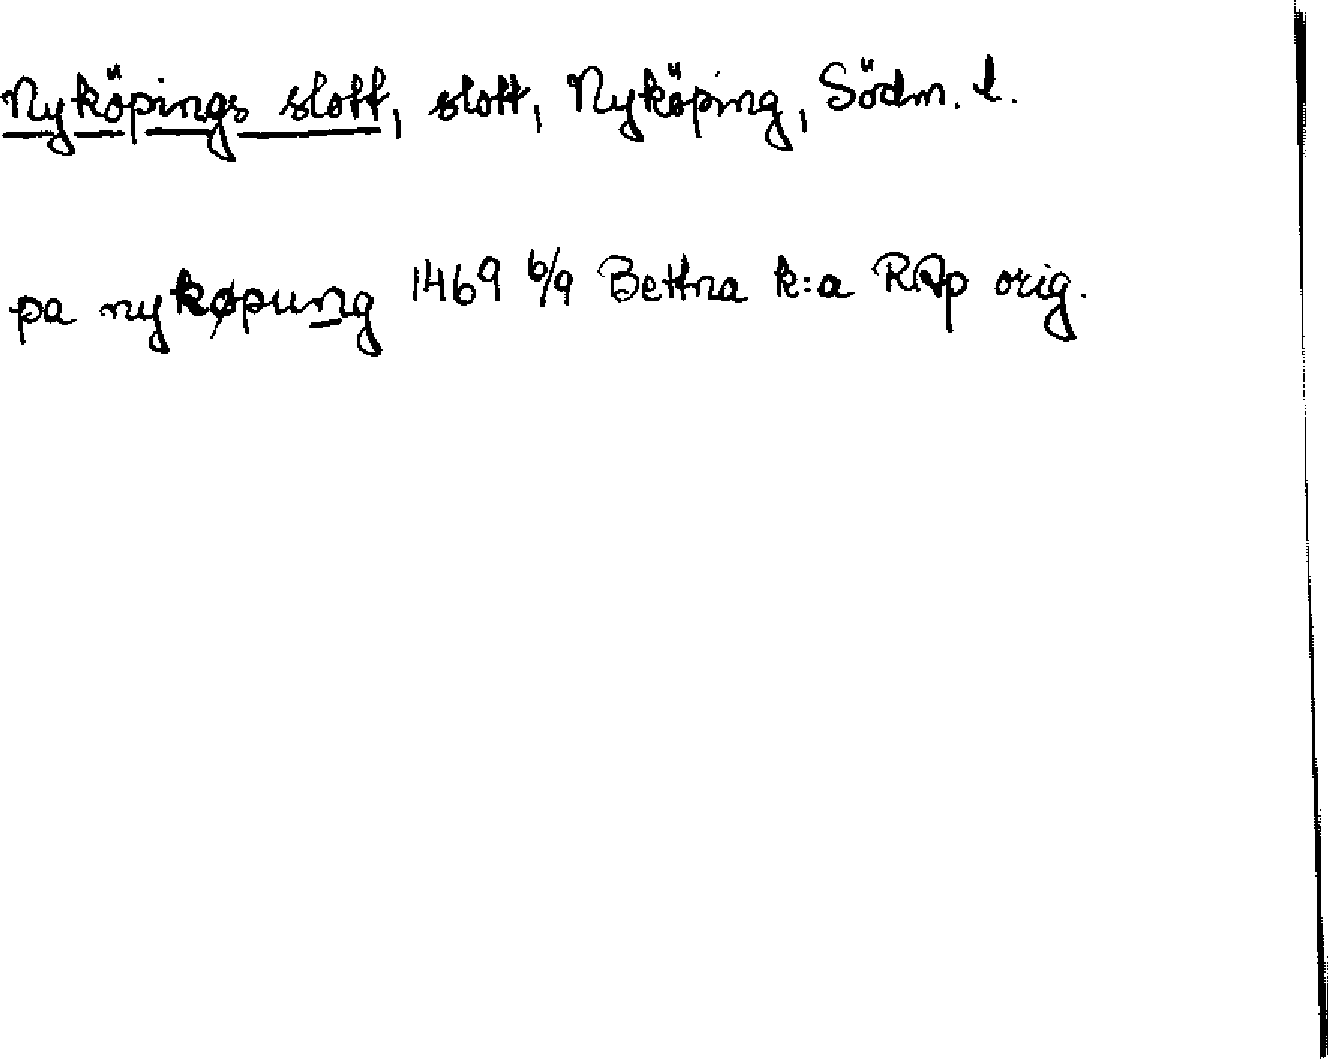 Nyköpings slott, slott, Nyköping, Södm. l.
pa nykøpung 1469 6/9 Bettna k:a RAp orig.